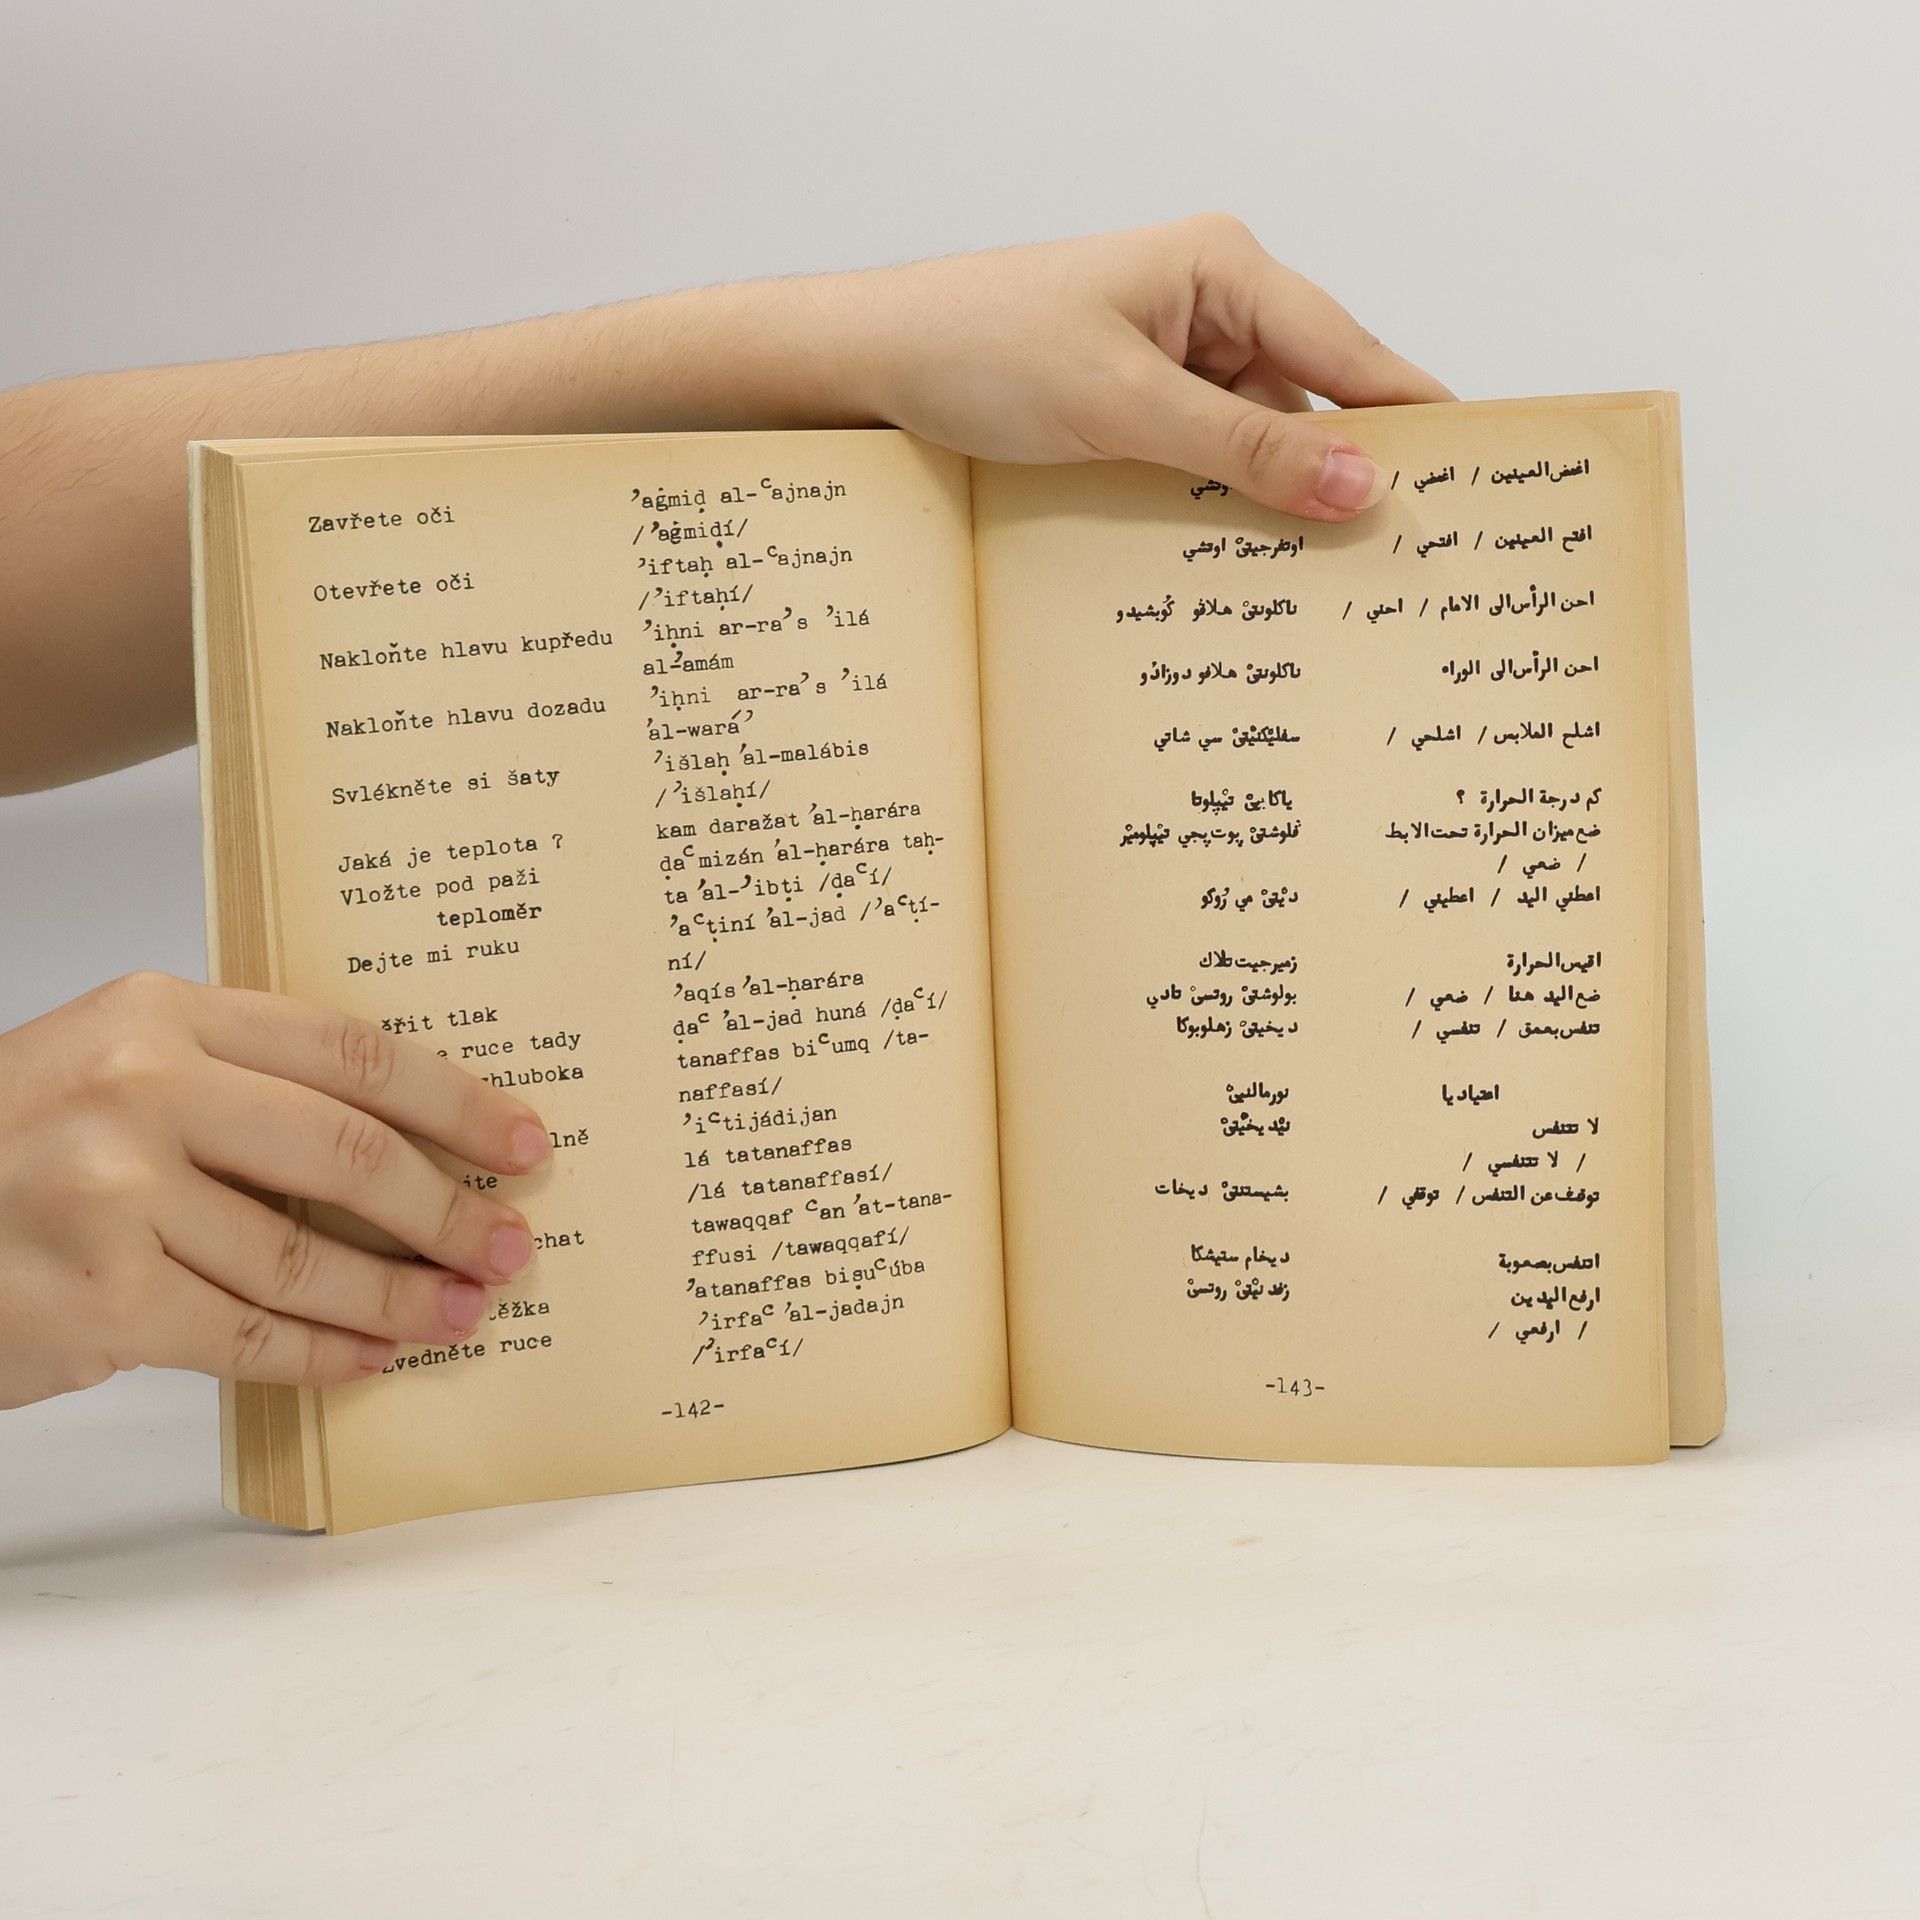 Zavřete oči
Otevřete oči
Nakloňte hlavu kupředu
Nakloňte hlavu dozadu
Svlékněte si šaty
Jaká je teplota ?
Vložte pod paži
teploměr
Dejte mi ruku
ěřit tlak
ruce tady
zhluboka
lně
jte
chat
těžka
Zvedněte ruce
ʼaġmiḍ al-ᶜajnajn
/ʼaġmiḍí/
ʼiftaḥ al-ᶜajnajn
/ʼiftaḥí/
ʼiḥni ar-raʼs ʼilá
al-ʼamám
ʼiḥni ar-raʼs ʼilá
ʼal-waráʼ
ʼišlaḥ ʼal-malábis
/ʼišlaḥí/
kam daražat ʼal-ḥarára
ḍaᶜ mizán ʼal-ḥarára taḥ-
ta ʼal-ʼibṭi /ḍaᶜí/
ʼaᶜṭiní ʼal-jad /ʼaᶜṭí-
ní/
ʼaqís ʼal-ḥarára
ḍaᶜ ʼal-jad huná /ḍaᶜí/
tanaffas biᶜumq /ta-
naffasí/
ʼiᶜtijádijan
lá tatanaffas
/lá tatanaffasí/
tawaqqaf ᶜan ʼat-tana-
ffusi /tawaqqafí/
ʼatanaffas biṣuᶜúba
ʼirfaᶜ ʼal-jadajn
/ʼirfaᶜí/
-142-
اغمض العينين / اغمضي / وتشي
افتح العينين / افتحي / اوتفرجيتىْ اوتشي
احن الرأس الى الامام / احني / ناكلونتىْ هلافو كُوبشيدو
احن الرأس الى الوراء ناكلونتىْ هلافو دوزادُو
اشلح الملابس / اشلحي / سفليْكنيْتىْ سي شاتي
كم درجة الحرارة ؟ ياكا بيىْ تيْپلوتا
ضع ميزان الحرارة تحت الابط ڤلوشتىْ پوت پجي تيْپلوميْر
/ ضعي /
اعطني اليد / اعطيني / ديْتىْ مي رُوكو
اقيس الحرارة زميرجيت تلاك
ضع اليد هنا / ضعي / بولوشتىْ روتسىْ تادي
تنفس بعمق / تنفسي / ديخيتىْ زهلوبوكا
اعتياديا نورمالنيىْ
لا تتنفس نيْديخيْتىْ
/ لا تتنفسي /
توقف عن التنفس / توقفي / بشيستنتىْ ديخات
اتنفس بصعوبة ديخام ستيشكا
ارفع اليدين زفدنيْتىْ روتسىْ
/ ارفعي /
-143-